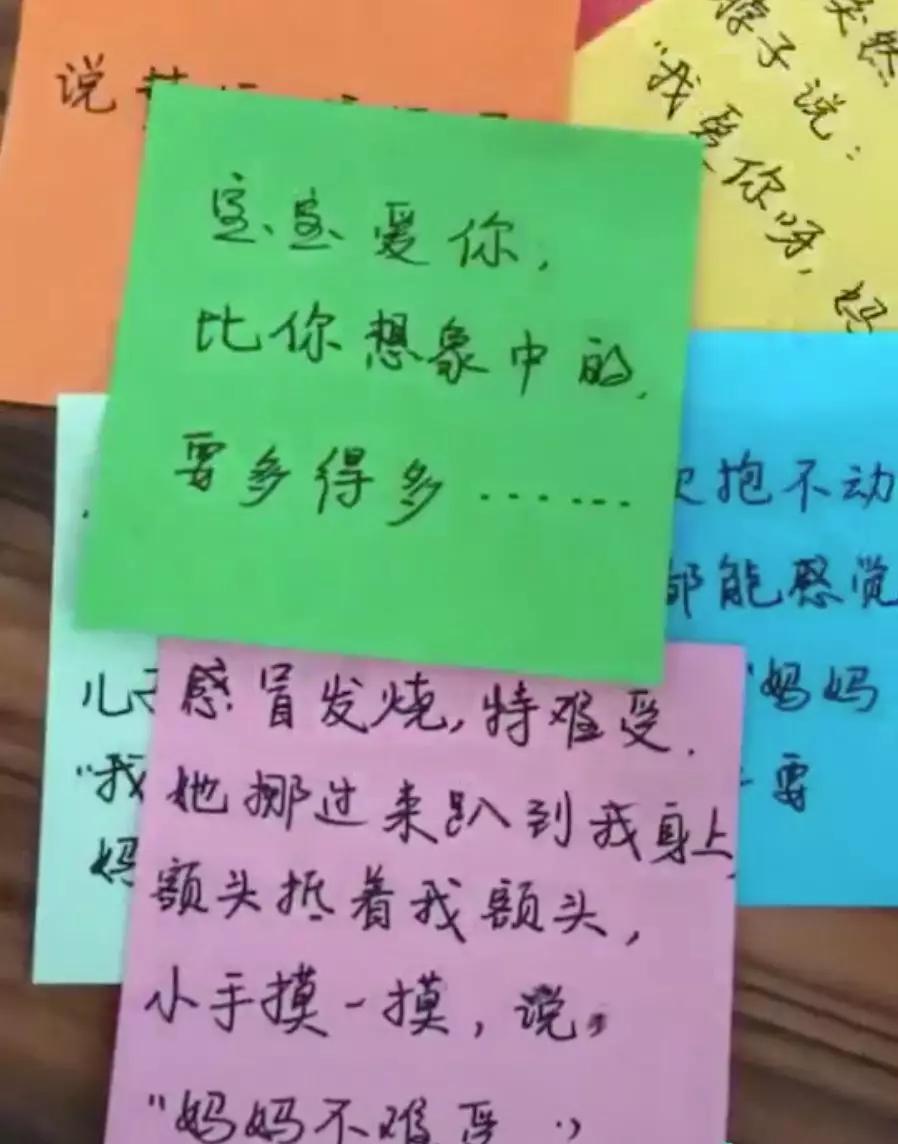 说
突然
脖子说：
"我爱你呀，妈
宝宝爱你，
比你想象中的，
要多得多……
抱不动
都能感觉
妈妈
要
儿子
"我
妈
感冒发烧，特难受．
她挪过来趴到我身上，
额头抵着我额头，
小手摸一摸，说，
"妈妈不难受．"